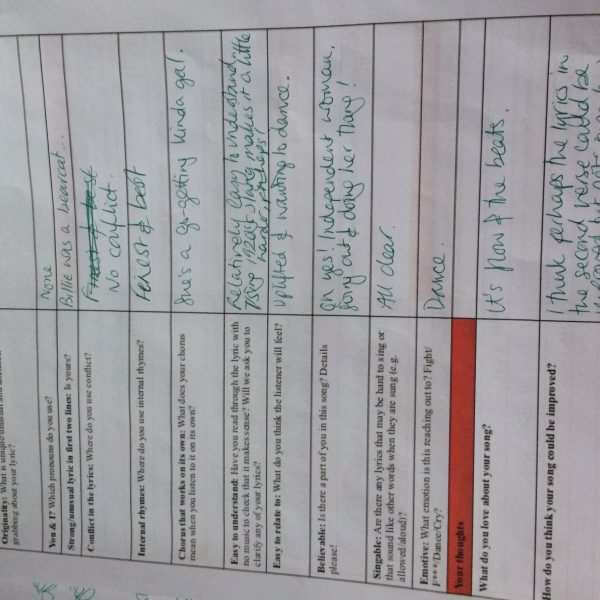 Originality: What is
grabbing about your lyric?
You & I? Which pronouns do you use?
None
Strong/unusual lyric in first two lines: Is yours?
Billie was a bearcat...
Conflict in the lyrics: Where do you use conflict?
No conflict.
Internal rhymes: Where do you use internal rhymes?
& best
Chorus that works on its own: What does your chorus
mean when you listen to it on its own?
She's a go-getting kinda gal.
Easy to understand: Have you read through the lyric with
no music to check that it makes sense? Will we ask you to
clarify any of your lyrics?
Relatively easy to understand.
Using 1920s slang makes it a little
harder perhaps!
Easy to relate to: What do you think the listener will feel?
Uplifted & wanting to dance.
Believable: Is there a part of you in this song? Details
please!
Oh yes! Independent woman,
going out & doing her thang!
Singable: Are there any lyrics that may be hard to sing or
that sound like other words when they are sung (e.g.
allowed/aloud)?
All clear.
Emotive: What emotion is this reaching out to? Fight/
F***/Dance/Cry?
Dance.
Your thoughts
What do you love about your song?
It's flow & the beats.
How do you think your song could be improved?
I think perhaps the lyrics in
the second verse could be